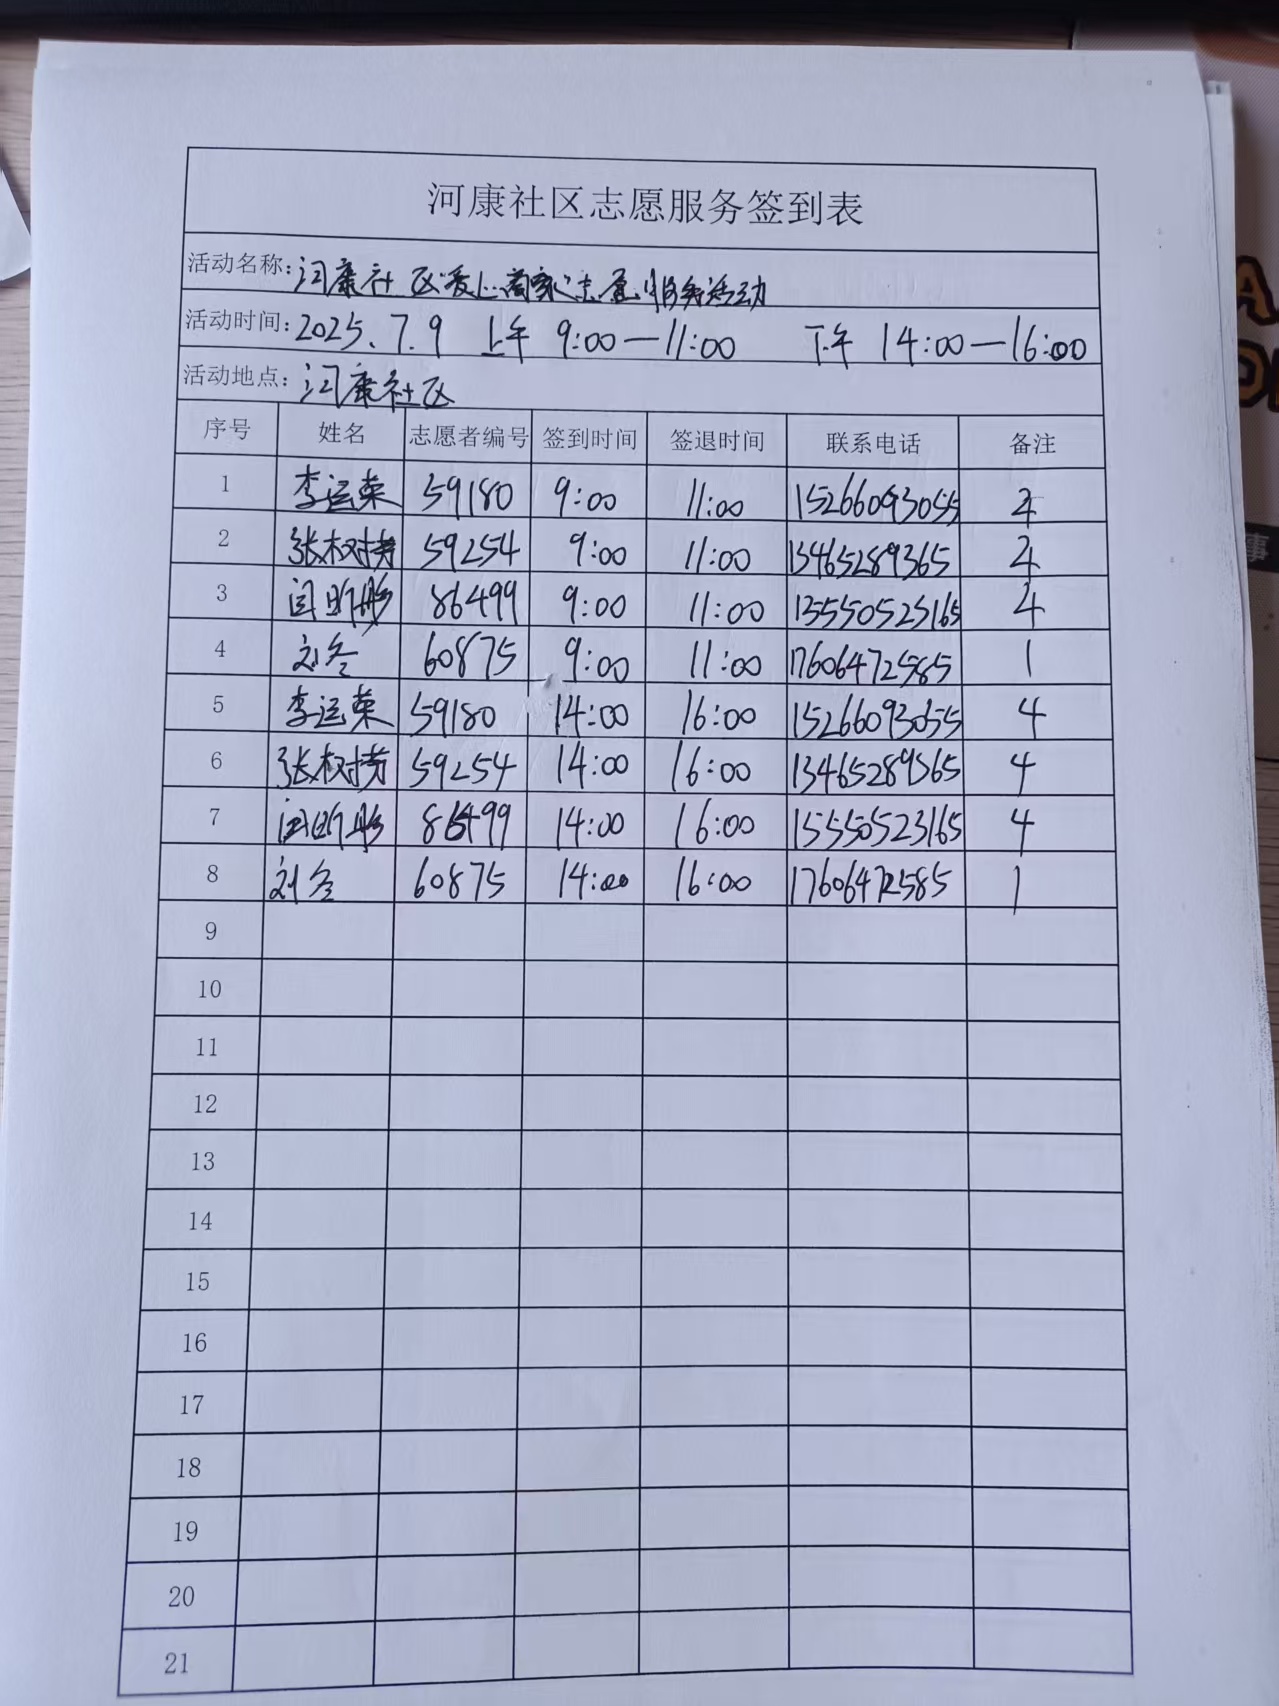 河康社区志愿服务签到表
活动名称: 河康社区爱心商家志愿服务活动
活动时间: 2025.7.9 上午 9:00—11:00 下午 14:00—16:00
活动地点: 河康社区
序号 姓名 志愿者编号 签到时间 签退时间 联系电话 备注
1 李运荣 59180 9:00 11:00 15266093055
2 59254 9:00 11:00 13465289365
3 闫昕彤 86499 9:00 11:00 15550523165 4
4 刘冬 60875 9:00 11:00 17606472585 1
5 李运荣 59180 14:00 16:00 15266093055 4
6 59254 14:00 16:00 13465289365 4
7 闫昕彤 86499 14:00 16:00 15550523165 4
8 刘冬 60875 14:00 16:00 17606472585 1
9
10
11
12
13
14
15
16
17
18
19
20
21
事